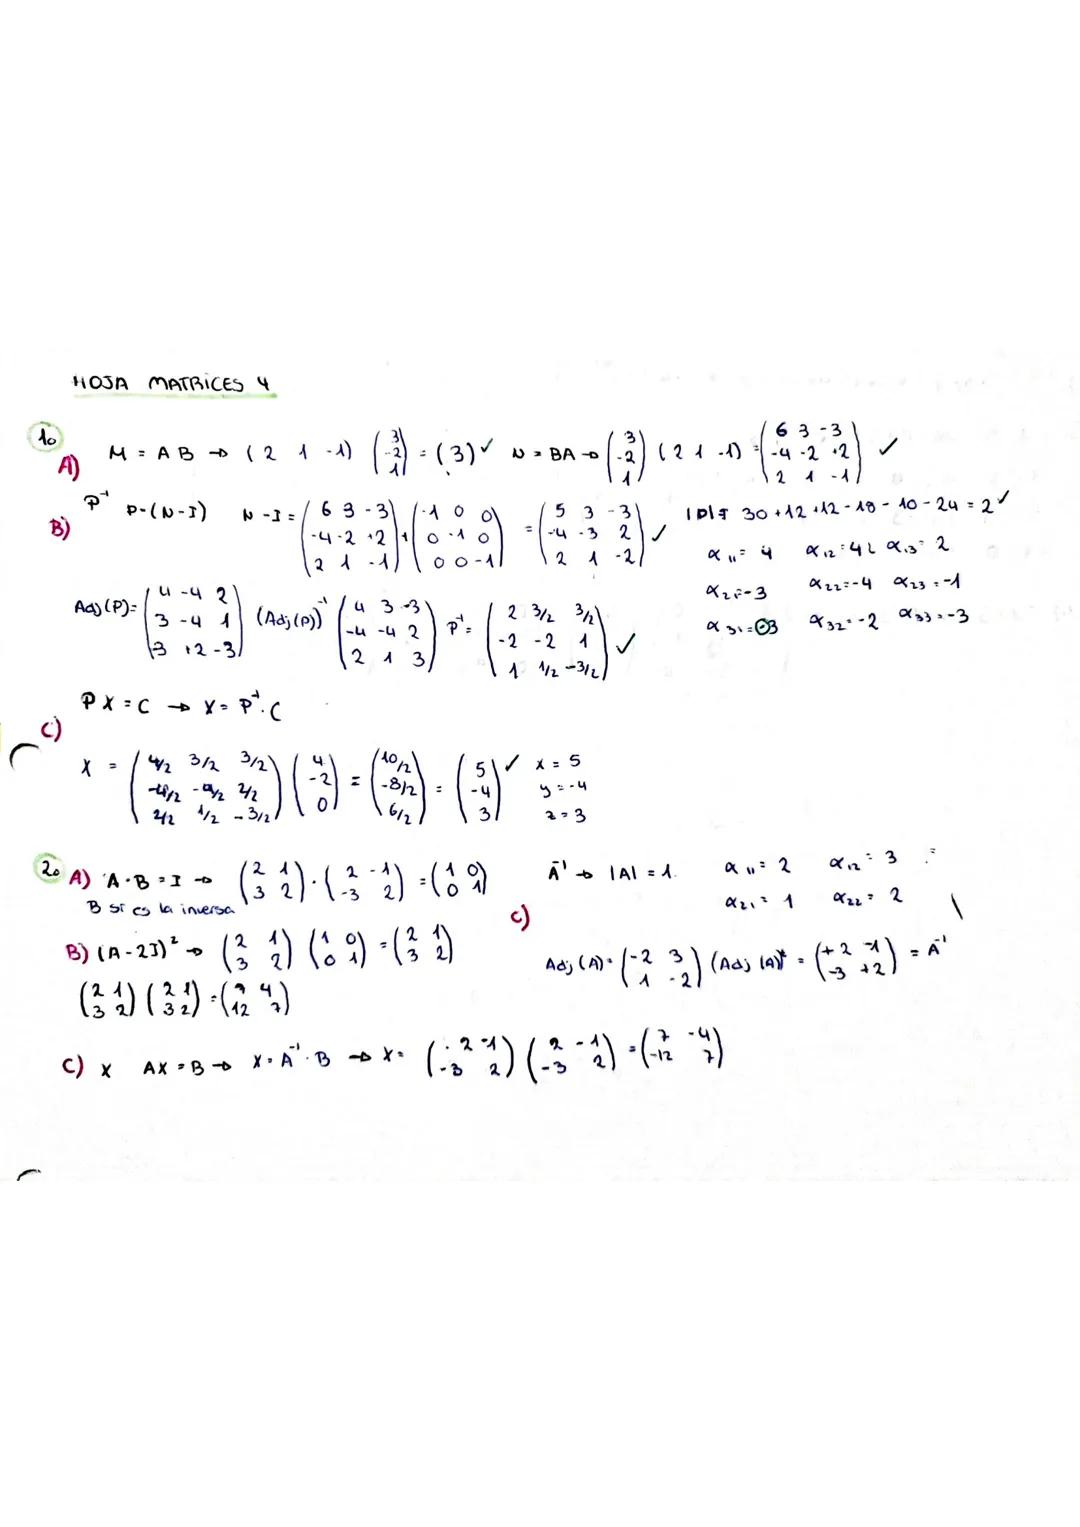 HOJA MATRICES 4
1º
A) M = AB → (2 1 -1) (3 -2 1) = (3) ✓ N = BA → (3 -2 1) (2 1 -1) = (6 3 -3 / -4 -2 +2 / 2 1 -1) ✓
B) P⁻¹ P=(N-I) N-I = (6 3 -3 / -4 -2 +2 / 2 1 -1) + (-1 0 0 / 0 -1 0 / 0 0 -1) = (5 3 -3 / -4 -3 2 / 2 1 -2) ✓ |P|= 30+12+12-18-10-24 = 2 ✓
α₁₁= 4 α₁₂= 4 α₁₃= 2
α₂₁=-3 α₂₂=-4 α₂₃=-1
α₃₁=-3 α₃₂=-2 α₃₃=-3
Adj(P)= (4 -4 2 / 3 -4 1 / -3 +2 -3) (Adj(P)) (4 3 -3 / -4 -4 2 / 2 1 3) P⁻¹= (2 3/2 3/2 / -2 -2 1 / 1 1/2 -3/2) ✓
C) PX = C → X = P⁻¹·C
X = (4/2 3/2 3/2 / -4/2 -4/2 2/2 / 2/2 1/2 -3/2) (4 -2 0) = (10/2 -8/2 6/2) = (5 -4 3) ✓ x = 5
y = -4
z = 3
2º A) A·B = I → (2 1 / 3 2) · (2 -1 / -3 2) = (1 0 / 0 1)
B si es la inversa
B) (A-2I)² → (2 1 / 3 2) (1 0 / 0 1) = (2 1 / 3 2)
(2 1 / 3 2) (2 1 / 3 2) = (7 4 / 12 7)
C) A⁻¹ → |A| = 1. α₁₁= 2 α₁₂= 3
α₂₁= 1 α₂₂= 2
Adj (A)= (-2 3 / 1 -2) (Adj (A))ᵗ = (+2 -1 / -3 +2) = A⁻¹
C) X AX = B → X = A⁻¹·B → X= (2 -1 / -3 2) (2 -1 / -3 2) = (7 -4 / -12 7)